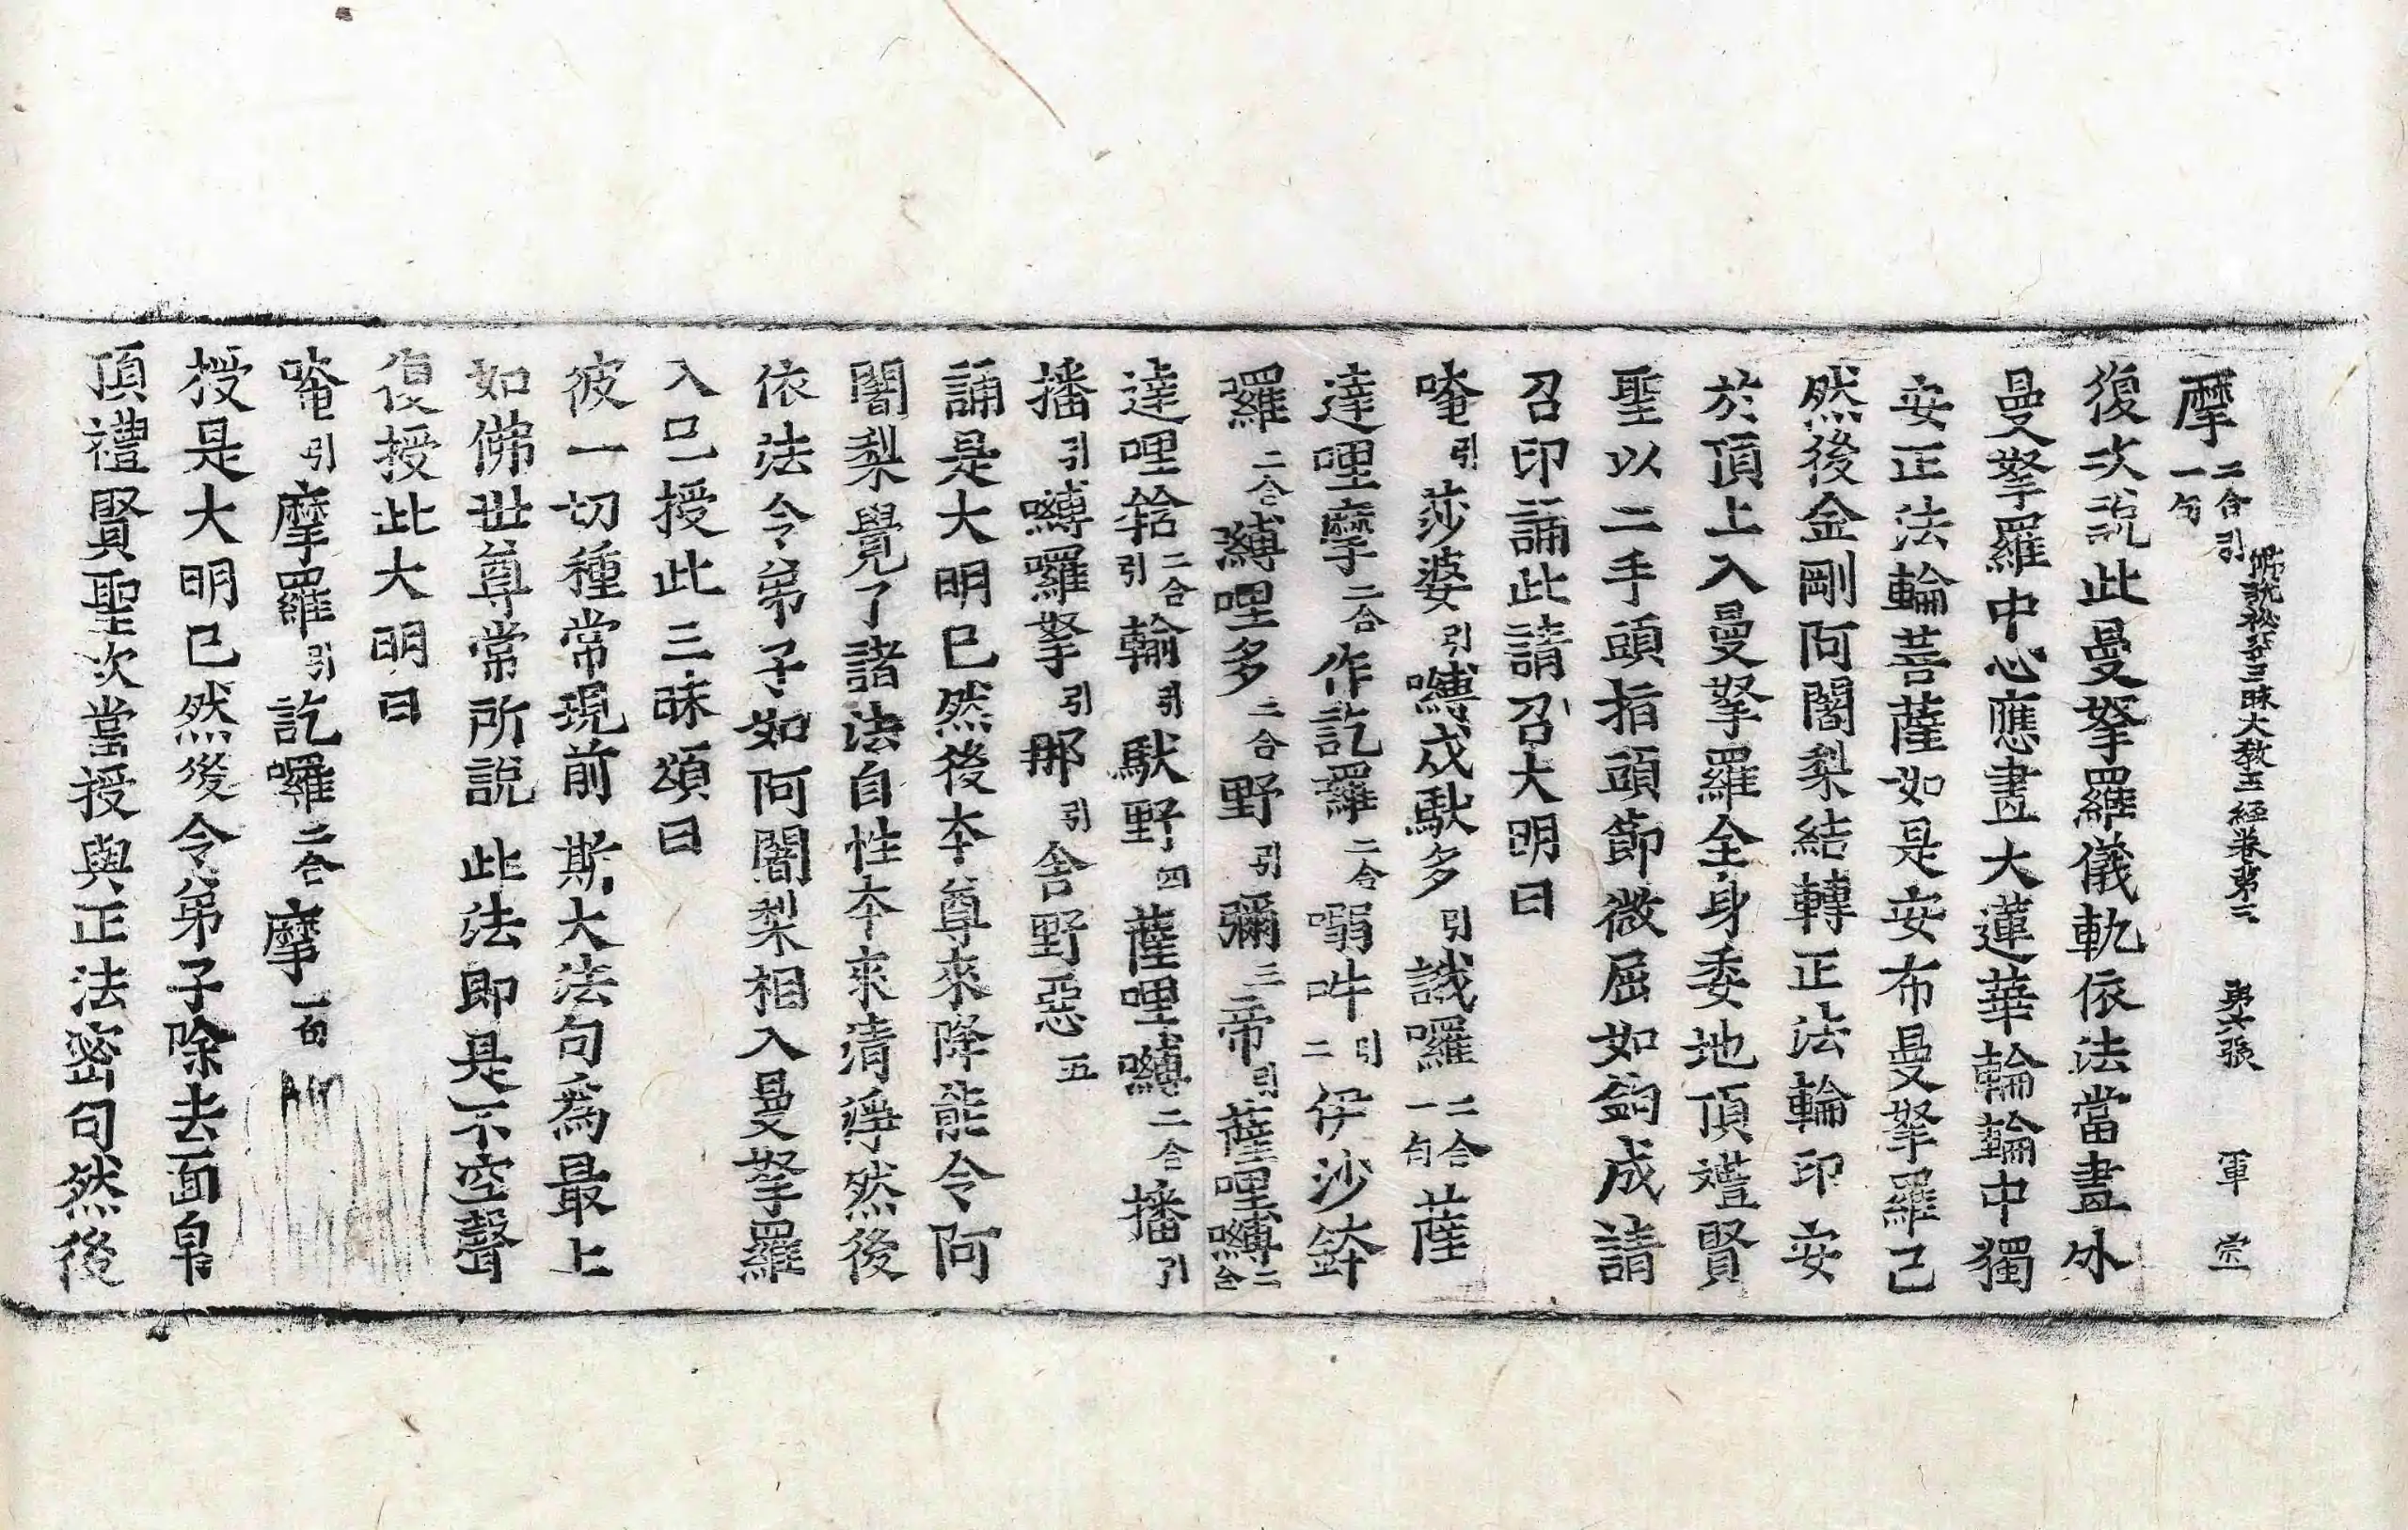 佛說祕密三昧大教王經卷第二 第六張 軍 崇
摩二合引一句
復次說此曼拏羅儀軌依法當畫外
曼拏羅中心應畫大蓮華輪輪中獨
安正法輪菩薩如是安布曼拏羅已
然後金剛阿闍梨結轉正法輪印安
於頂上入曼拏羅全身委地頂禮賢
聖以二手頭指頭節微屈如鉤成請
召印誦此請召大明曰
唵引莎婆引嚩戍馱多引誐囉二合一句薩
達哩摩二合作訖羅二合嗢吽引二伊沙鉢
羅二合縛哩多二合野引彌三帝引薩哩嚩二合
達哩䤈二合引輸引馱野四薩哩嚩二合播引
播引嚩囉拏引那引舍野惡五
誦是大明已然後本尊來降能令阿
闍梨覺了諸法自性本來清淨然後
依法令弟子如阿闍梨相入曼拏羅
入已授此三昧頌曰
彼一切種常現前 斯大法句爲最上
如佛世尊常所說 此法即是不空聲
復授此大明曰
唵引摩羅引訖囉二合摩一句
授是大明已然後令弟子除去面帛
頂禮賢聖次當授與正法密句然後